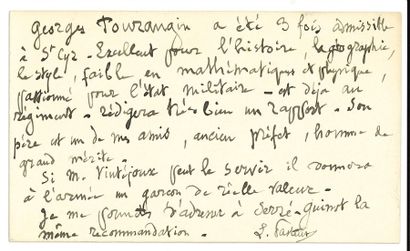 Georges Touranain a été 3 fois admissible
à St Cyr - Excellent pour l'histoire, la géographie,
le style, faible en mathématiques et physique,
passionné pour l'état militaire - est déjà au
régiment - rédigera très bien un rapport. Son
père est un de mes amis, ancien préfet, homme de
grand mérite.
Si M. Vintéjoux peut le servir il donnera
à l'armée un garçon de réelle valeur.
Je me permets d'adresser à Serré-Guinot la
même recommandation.